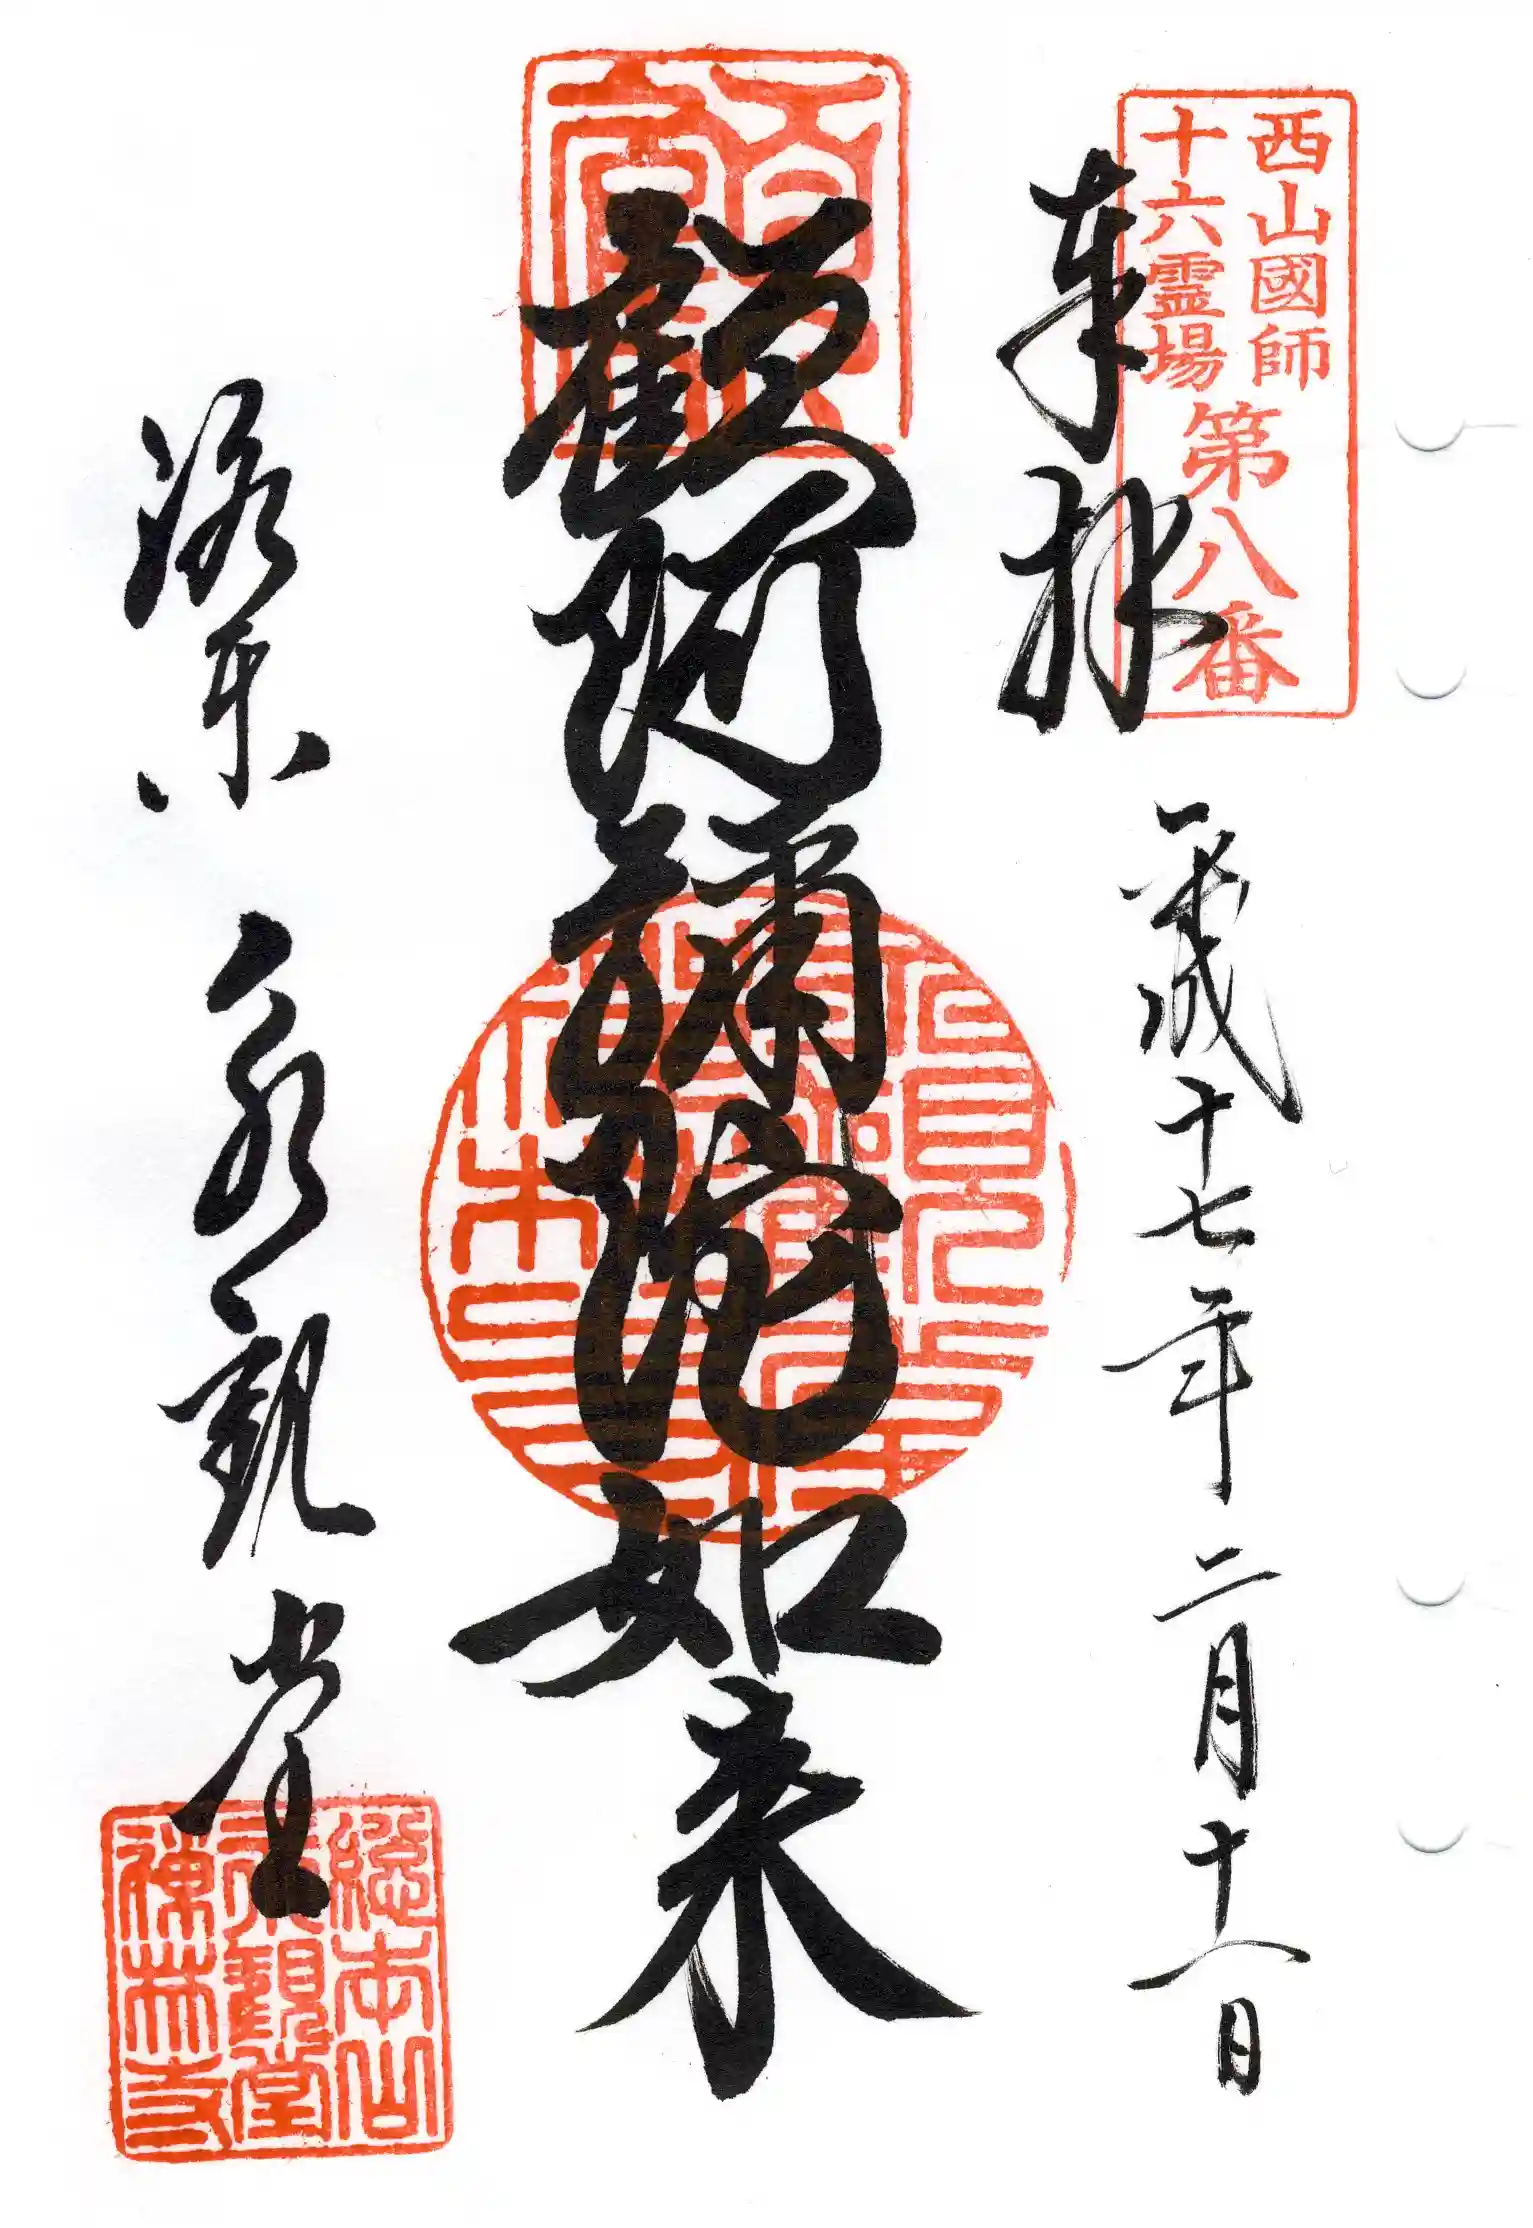 西山國師
十六霊場
第八番
奉拝
平成十七年二月十八日
顧阿彌陀如来
洛東 永觀堂
總本山
永觀堂
禪林寺